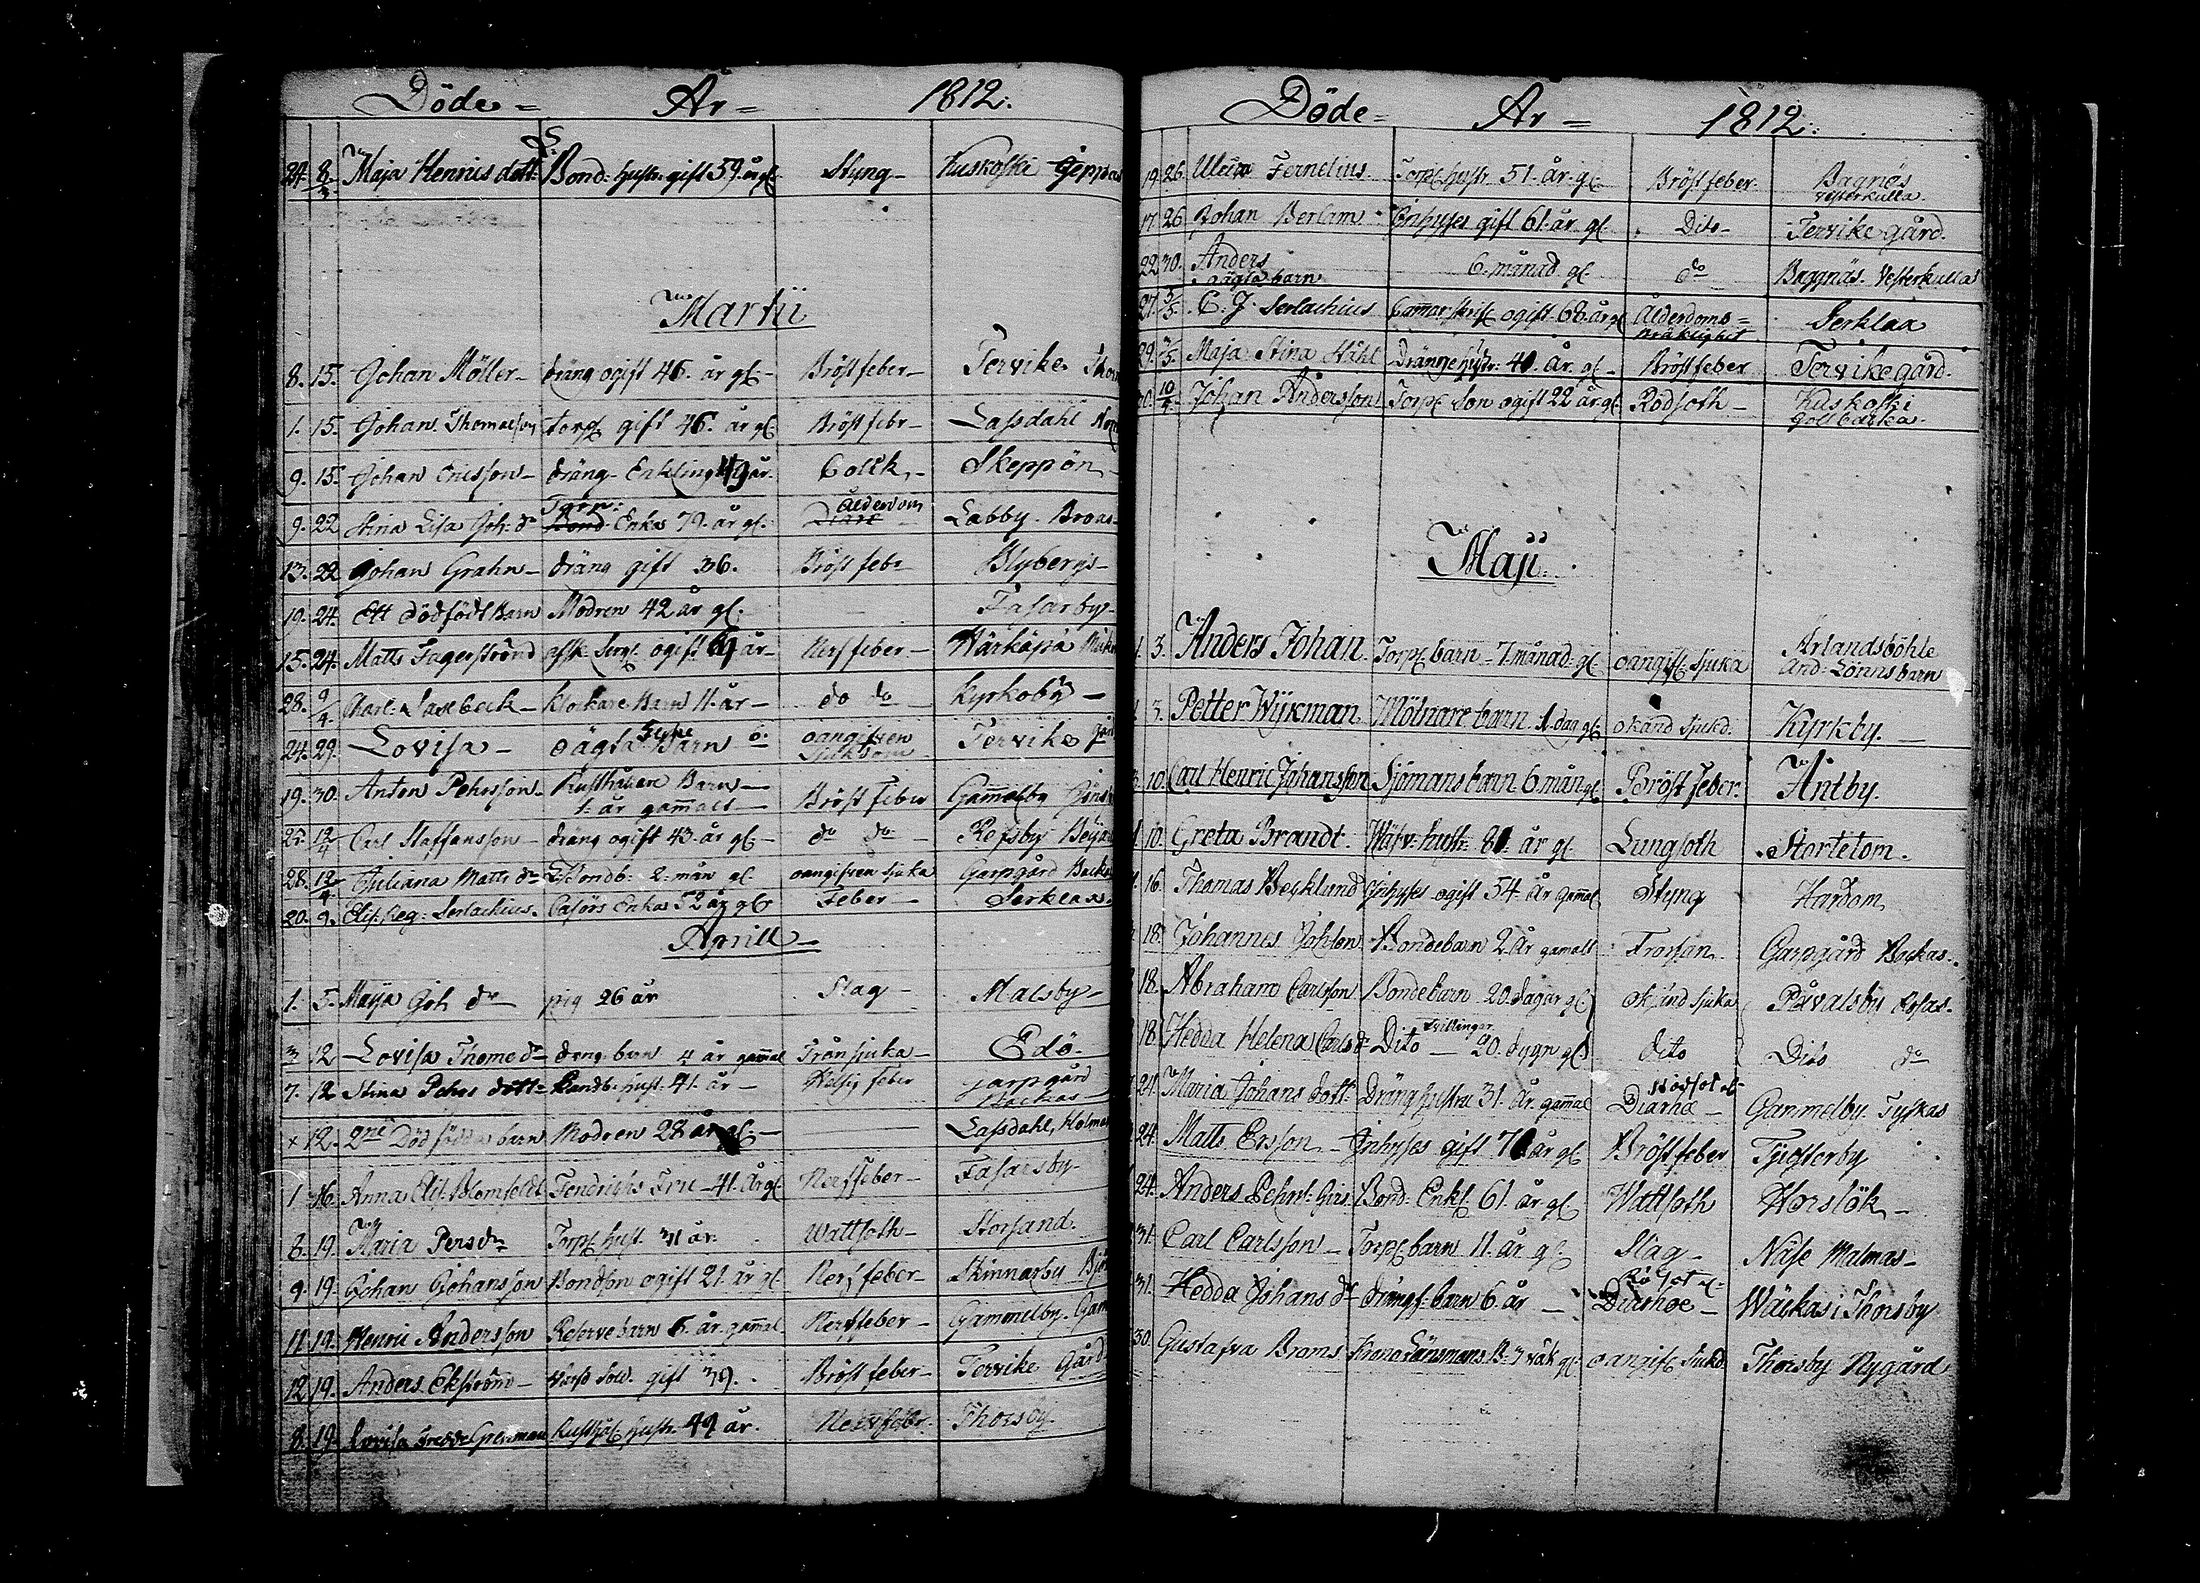 Döde = År = 1812.
24. 8/3 Maja Henrisdott: Bond: hustr. gift 59 år gl. Styng Kuskoski Jeppas
Martii
8. 15. Johan Möller dräng ogift 46. år gl. Bröstfeber Tervike
1. 15. Johan Thomasson torp gift 46. år gl. Bröstfebr Lassdahl
9. 15. Johan Ericsson dräng Enkling 49 år. Colik Skeppön
9. 22 Stina Lisa Joh: dr Torp: Enka 79. år gl. Ålderdom Labby Broas
13. 22 Johan Grahn dräng gift 36. Bröstfebr Blybergs
19. 24. Ett dödfödt Barn Modren 42 år gl. Fasarby
15. 24. Matts Fagerström afsk. Serg. ogift år Nerffeber Härkäpä
28. 9/4 Charl: Saxbeck Klockare Barn 11. år do do Kyrkoby
24. 29. Lovisa oägta Barn oangifven Sjukdom Tervike
19. 30. Anton Pehrsson Rusthållare Barn
1. år gammalt Bröst feber Gammelby
25. 12/4 Carl Staffansson dräng ogift 43. år gl. do do Refsby
28. 12/4 Juliana Matts dr Bondb: 2. mån gl. oangifven sjuka Garpgård Backas
20. 9. Elis. Reg: Serlachius Enka 52 år gl. Feber Serklax
Aprill
1. 5. Maja Joh dr pig 26 år Slag Malsby
3 12 Lovisa Thome dr dreng barn 4 år gammal Trånsjuka Edö
7. 12 Stina Pehrs dott: Landb: hust: 41. år feber Garpgård Backas
x 12. 2ne Dödfödda barn Modren 28 år gl. Lassdahl, Holmas
1 16. Anna Elis. Blomfeldt Fendrichs Fru 41. år gl. Nerffeber Fasarby
6. 19. Maria Persdr Torp hust. 31 år. Wattsoth Storsand
9. 19. Johan Johansson Bondson ogift 21. år gl. Nerffeber Skinnarby
11. 19. Henric Andersson Reservebarn 6. år gammal Nerffeber Gammelby
12. 19. Anders Ekström Sold. gift 39. Bröstfeber Tervike Gård
8. 19. Lovisa hustr. 49 år. Nervfeber Thorsby
Döde = År = 1812.
19. 26. Ulrica Fernelius Torp hustr 51. år gl. Bröstfeber. Bagnäs Vesterkulla.
17 26 Johan Berlam Inhyses gift 61. år gl. Dito Tervike gård.
22 30. Anders oägta barn 6. månad gl. do Baggnäs Vesterkulla
27. 3/5. C. J. Serlachius ogift 68. år gl Ålderdoms= bräklighet Serklax
29. 3/5. Maja Stina Ståhl Dränge hustr: 40. år. gl Bröstfeber Tervike gård.
10/5. Johan Andersson Torp Son ogift 22 år gl. Rödsoth Kuskoski Gollbacka.
Maji.
3. Anders Johan Torp barn 7. månad gl. oangifv: sjuka Arlandsböhle And: Lönns barn
3. Petter Wykman Mölnare barn 1. dag gl. okänd sjukd. Kyrkby.
10. Carl Henric Johansson Sjömans barn 6. mån gl. Bröstfeber. Antby.
10. Greta Brandt. hustr. 81. år gl. Lungsoth Stortetom.
16. Thomas Becklund Inhyses ogift 54. år gammal Styng Hardom
18. Johannes Johson Bondebarn 2. år gammalt Frossan Garpgård Backas.
18. Abraham Carlsson Bondebarn 20. dagar gl. okänd sjuka Påvalsby
18. Hedda Helena Carlsdr Dito tvillingar 20. dygn gl. dito Dito do
24. Maria Johans dott: Dräng hustru 31. år. gammal Rödsot el. Diarhæ Gammelby Tyskas
24. Matts Ersson Inhyses gift 71 år gl. Bröstfeber Tjusterby
24. Anders Pehrs: Bond: Enkl. 61. år gl. Wattsoth Horslök
31. Carl Carlsson Torp barn 11. år gl. Slag Näse Malmas
31. Hedda Johans dr dräng barn 6. år Rödsot el. Diarhoe Wäckas i Thorsby
30. Gustafva Brams Krono Länsmans B: 3 väk gl. oangifv. sjukd. Thorsby Nygård